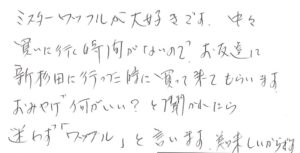 ミスターワッフルが大好きです。中々
買いに行く時間がないので、お友達に
新杉田に行った時に買って来てもらいます
おみやげ何がいい？と聞かれたら
迷わず「ワッフル」と言います。美味しいからです